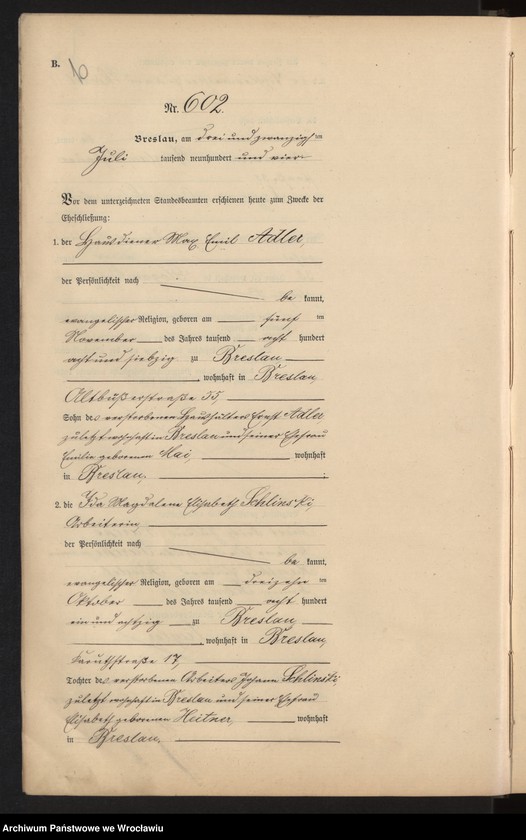 B.
9
Nr. 602.
Breslau, am drei und zwanzigsten
Juli tausend neunhundert und vier
Vor dem unterzeichneten Standesbeamten erschienen heute zum Zwecke der
Eheschließung:
1. der Hausdiener Max Emil Adler,
der Persönlichkeit nach
be kannt,
evangelischer Religion, geboren am fünften
November des Jahres tausend acht hundert
acht und siebzig zu Breslau
, wohnhaft in Breslau,
Altbüßerstraße 55,
Sohn des verstorbenen Haushälters Ernst Adler
zuletzt wohnhaft in Breslau und seiner Ehefrau
Emilie geborenen Mai, wohnhaft
in Breslau. ;
2. die Ida Magdalena Elisabeth Schlinski
Arbeiterin,
der Persönlichkeit nach
be kannt,
evangelischer Religion, geboren am dreizehnten
Oktober des Jahres tausend acht hundert
ein und achtzig zu Breslau,
, wohnhaft in Breslau,
straße 17,
Tochter des verstorbenen Arbeiters Johann Schlinski,
zuletzt wohnhaft in Breslau und seiner Ehefrau
Elisabeth geborenen Heitner, wohnhaft
in Breslau.
Archiwum Państwowe we Wrocławiu